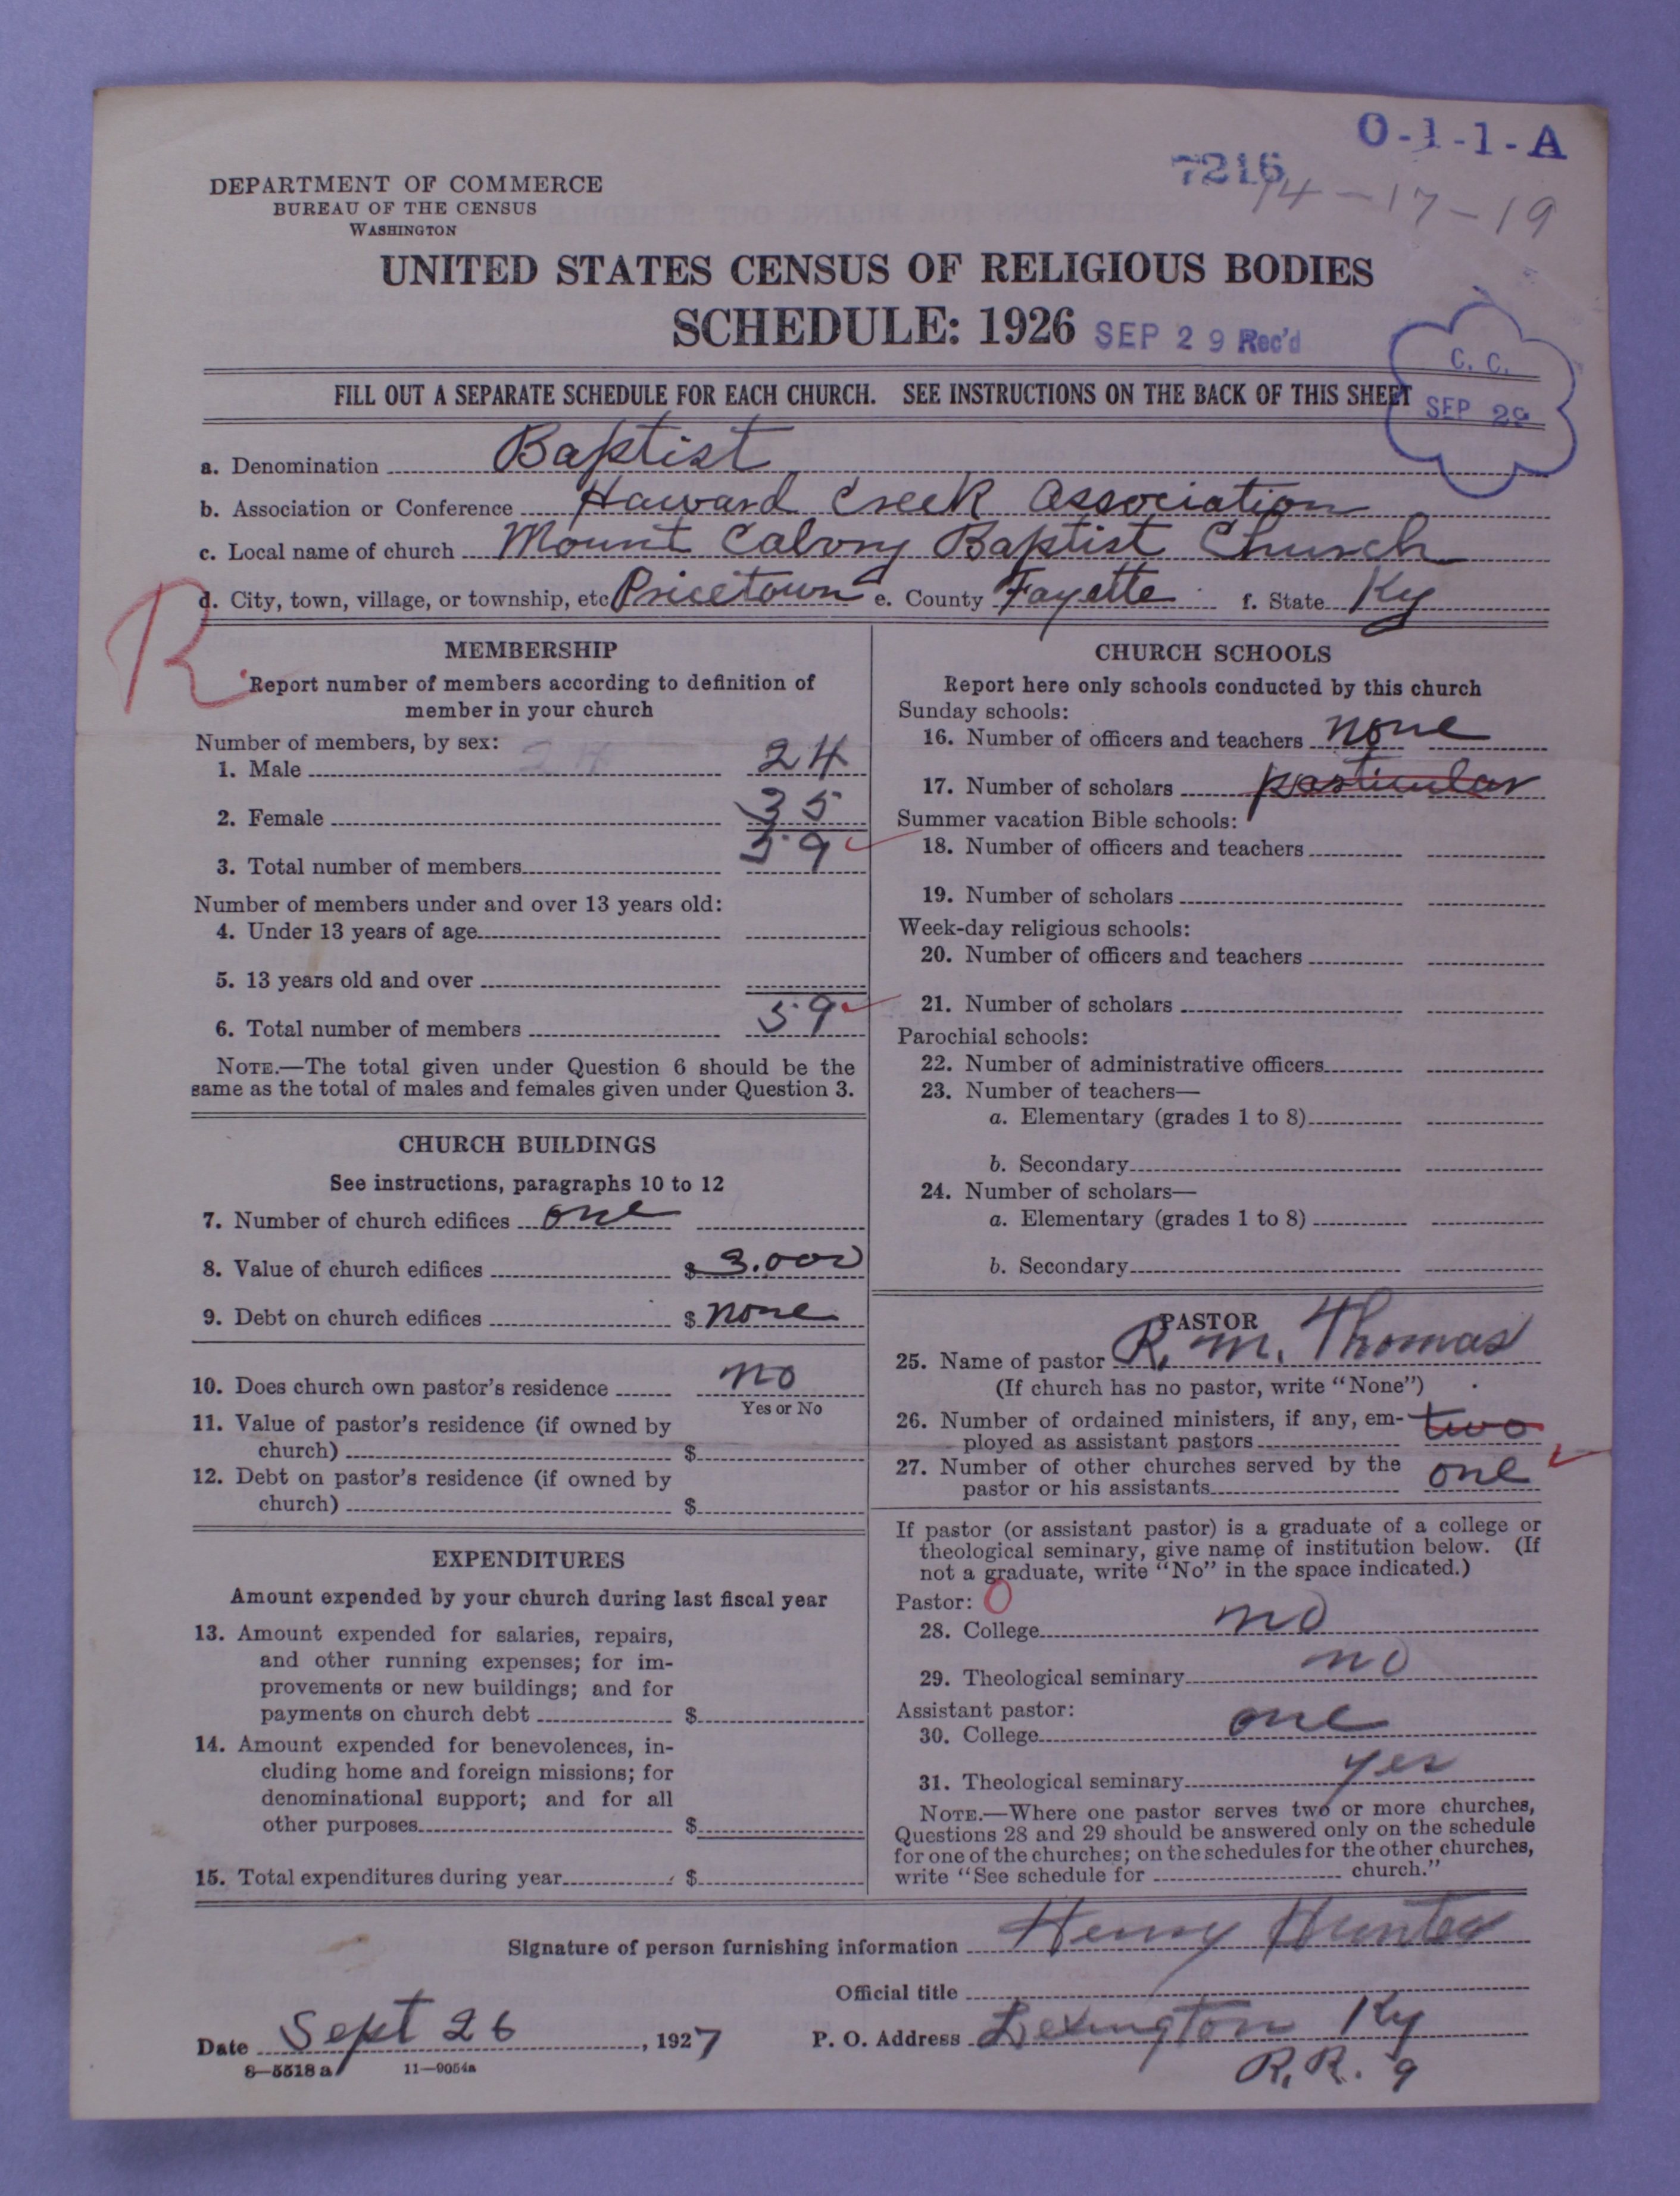 O-1-1-A
7216
14-17-19
DEPARTMENT OF COMMERCE
BUREAU OF THE CENSUS
WASHINGTON
UNITED STATES CENSUS OF RELIGIOUS BODIES
SCHEDULE: 1926 SEP 29 Rec'd
C. C.
SEP 29
FILL OUT A SEPARATE SCHEDULE FOR EACH CHURCH. SEE INSTRUCTIONS ON THE BACK OF THIS SHEET
a. Denomination Baptist
b. Association or Conference Haward Creek Association
c. Local name of church Mount Calvry Baptist Church
d. City, town, village, or township, etc Pricetown e. County Fayette f. State Ky
R
MEMBERSHIP
Report number of members according to definition of
member in your church
Number of members, by sex: 24
1. Male 24
2. Female 35
3. Total number of members 59
Number of members under and over 13 years old:
4. Under 13 years of age
5. 13 years old and over
6. Total number of members 59
NOTE.—The total given under Question 6 should be the
same as the total of males and females given under Question 3.
CHURCH BUILDINGS
See instructions, paragraphs 10 to 12
7. Number of church edifices one
8. Value of church edifices $ 3.000
9. Debt on church edifices $ none
10. Does church own pastor's residence no
Yes or No
11. Value of pastor's residence (if owned by
church) $
12. Debt on pastor's residence (if owned by
church) $
EXPENDITURES
Amount expended by your church during last fiscal year
13. Amount expended for salaries, repairs,
and other running expenses; for im-
provements or new buildings; and for
payments on church debt $
14. Amount expended for benevolences, in-
cluding home and foreign missions; for
denominational support; and for all
other purposes $
15. Total expenditures during year $
CHURCH SCHOOLS
Report here only schools conducted by this church
Sunday schools:
16. Number of officers and teachers none
17. Number of scholars particular
Summer vacation Bible schools:
18. Number of officers and teachers
19. Number of scholars
Week-day religious schools:
20. Number of officers and teachers
21. Number of scholars
Parochial schools:
22. Number of administrative officers
23. Number of teachers—
a. Elementary (grades 1 to 8)
b. Secondary
24. Number of scholars—
a. Elementary (grades 1 to 8)
b. Secondary
PASTOR
25. Name of pastor R. M. Thomas
(If church has no pastor, write "None")
26. Number of ordained ministers, if any, em-
ployed as assistant pastors two
27. Number of other churches served by the
pastor or his assistants one
If pastor (or assistant pastor) is a graduate of a college or
theological seminary, give name of institution below. (If
not a graduate, write "No" in the space indicated.)
Pastor: 0
28. College no
29. Theological seminary no
Assistant pastor:
30. College one
31. Theological seminary yes
NOTE.—Where one pastor serves two or more churches,
Questions 28 and 29 should be answered only on the schedule
for one of the churches; on the schedules for the other churches,
write "See schedule for church."
Signature of person furnishing information Henry Hunter
Official title
Date Sept 26, 1927 P. O. Address Lexington Ky
R. R. 9
8—5518 a 11—9054a